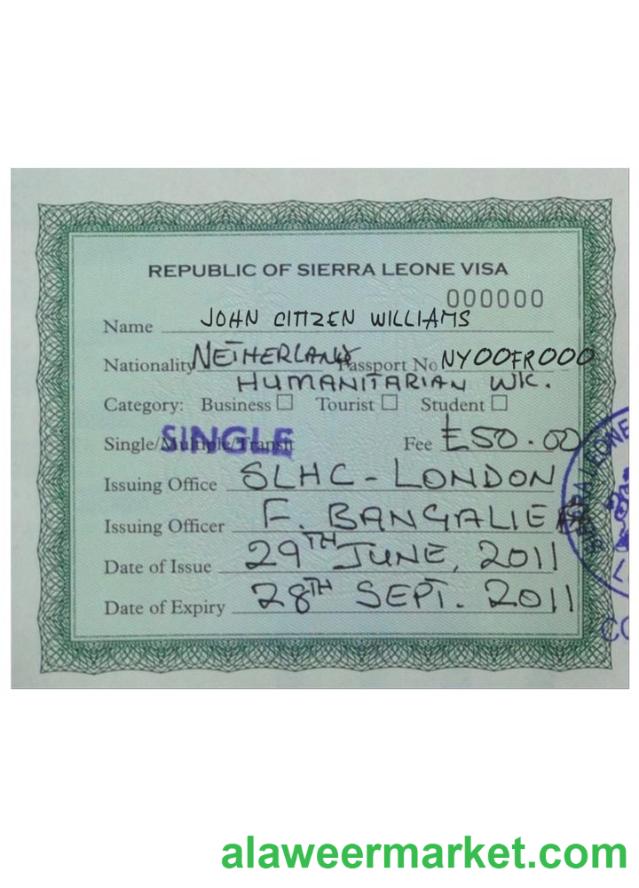 REPUBLIC OF SIERRA LEONE VISA
000000
Name JOHN CITIZEN WILLIAMS
Nationality NETHERLAND Passport No NY00FR000
HUMANITARIAN WK.
Category: Business Tourist Student
Single/Multiple/Transit SINGLE Fee £50.00
Issuing Office SLHC-LONDON
Issuing Officer F. BANGALIE
Date of Issue 29TH JUNE, 2011
Date of Expiry 28TH SEPT. 2011
SIERRA LEONE
alaweermarket.com